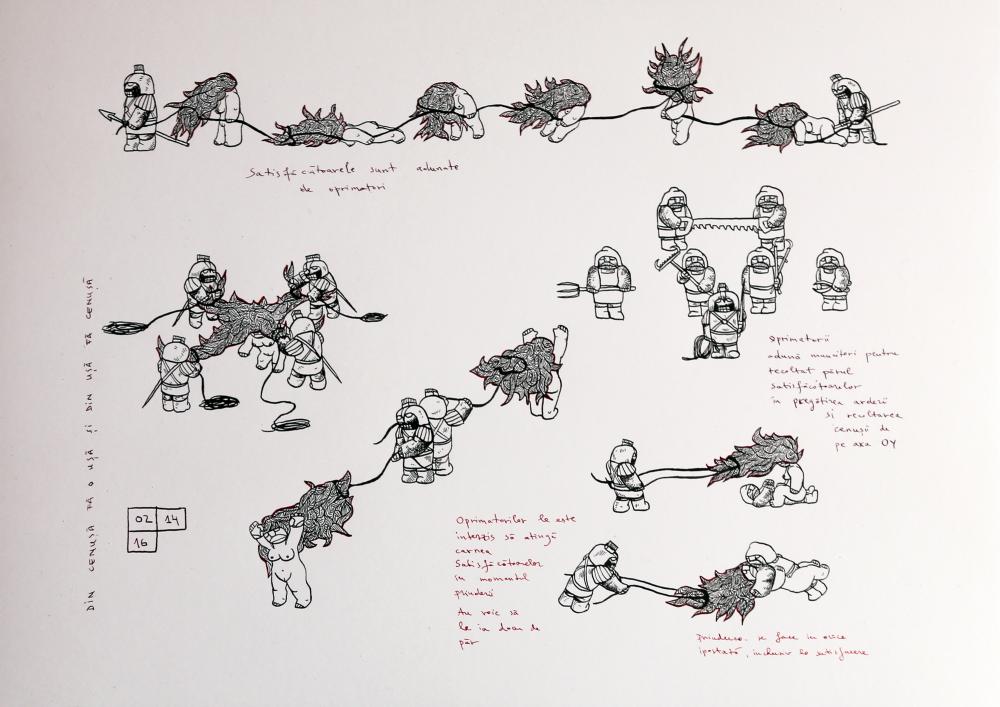 Satisfăcătoarele sunt adunate
de oprimatori
DIN CENUȘĂ FĂ O UȘĂ ȘI DIN UȘĂ FĂ CENUȘĂ
02 14
16
Oprimatorii
adună muncitori pentru
recoltat părul
satisfăcătoarelor
în pregătirea arderii
și recoltarea
cenușii de
pe axa OY
Oprimatorilor le este
interzis să atingă
carnea
Satisfăcătoarelor
în momentul
prinderii
Au voie să
le ia doar de
păr
Prinderea se face în orice
ipostază, inclusiv la satisfacere